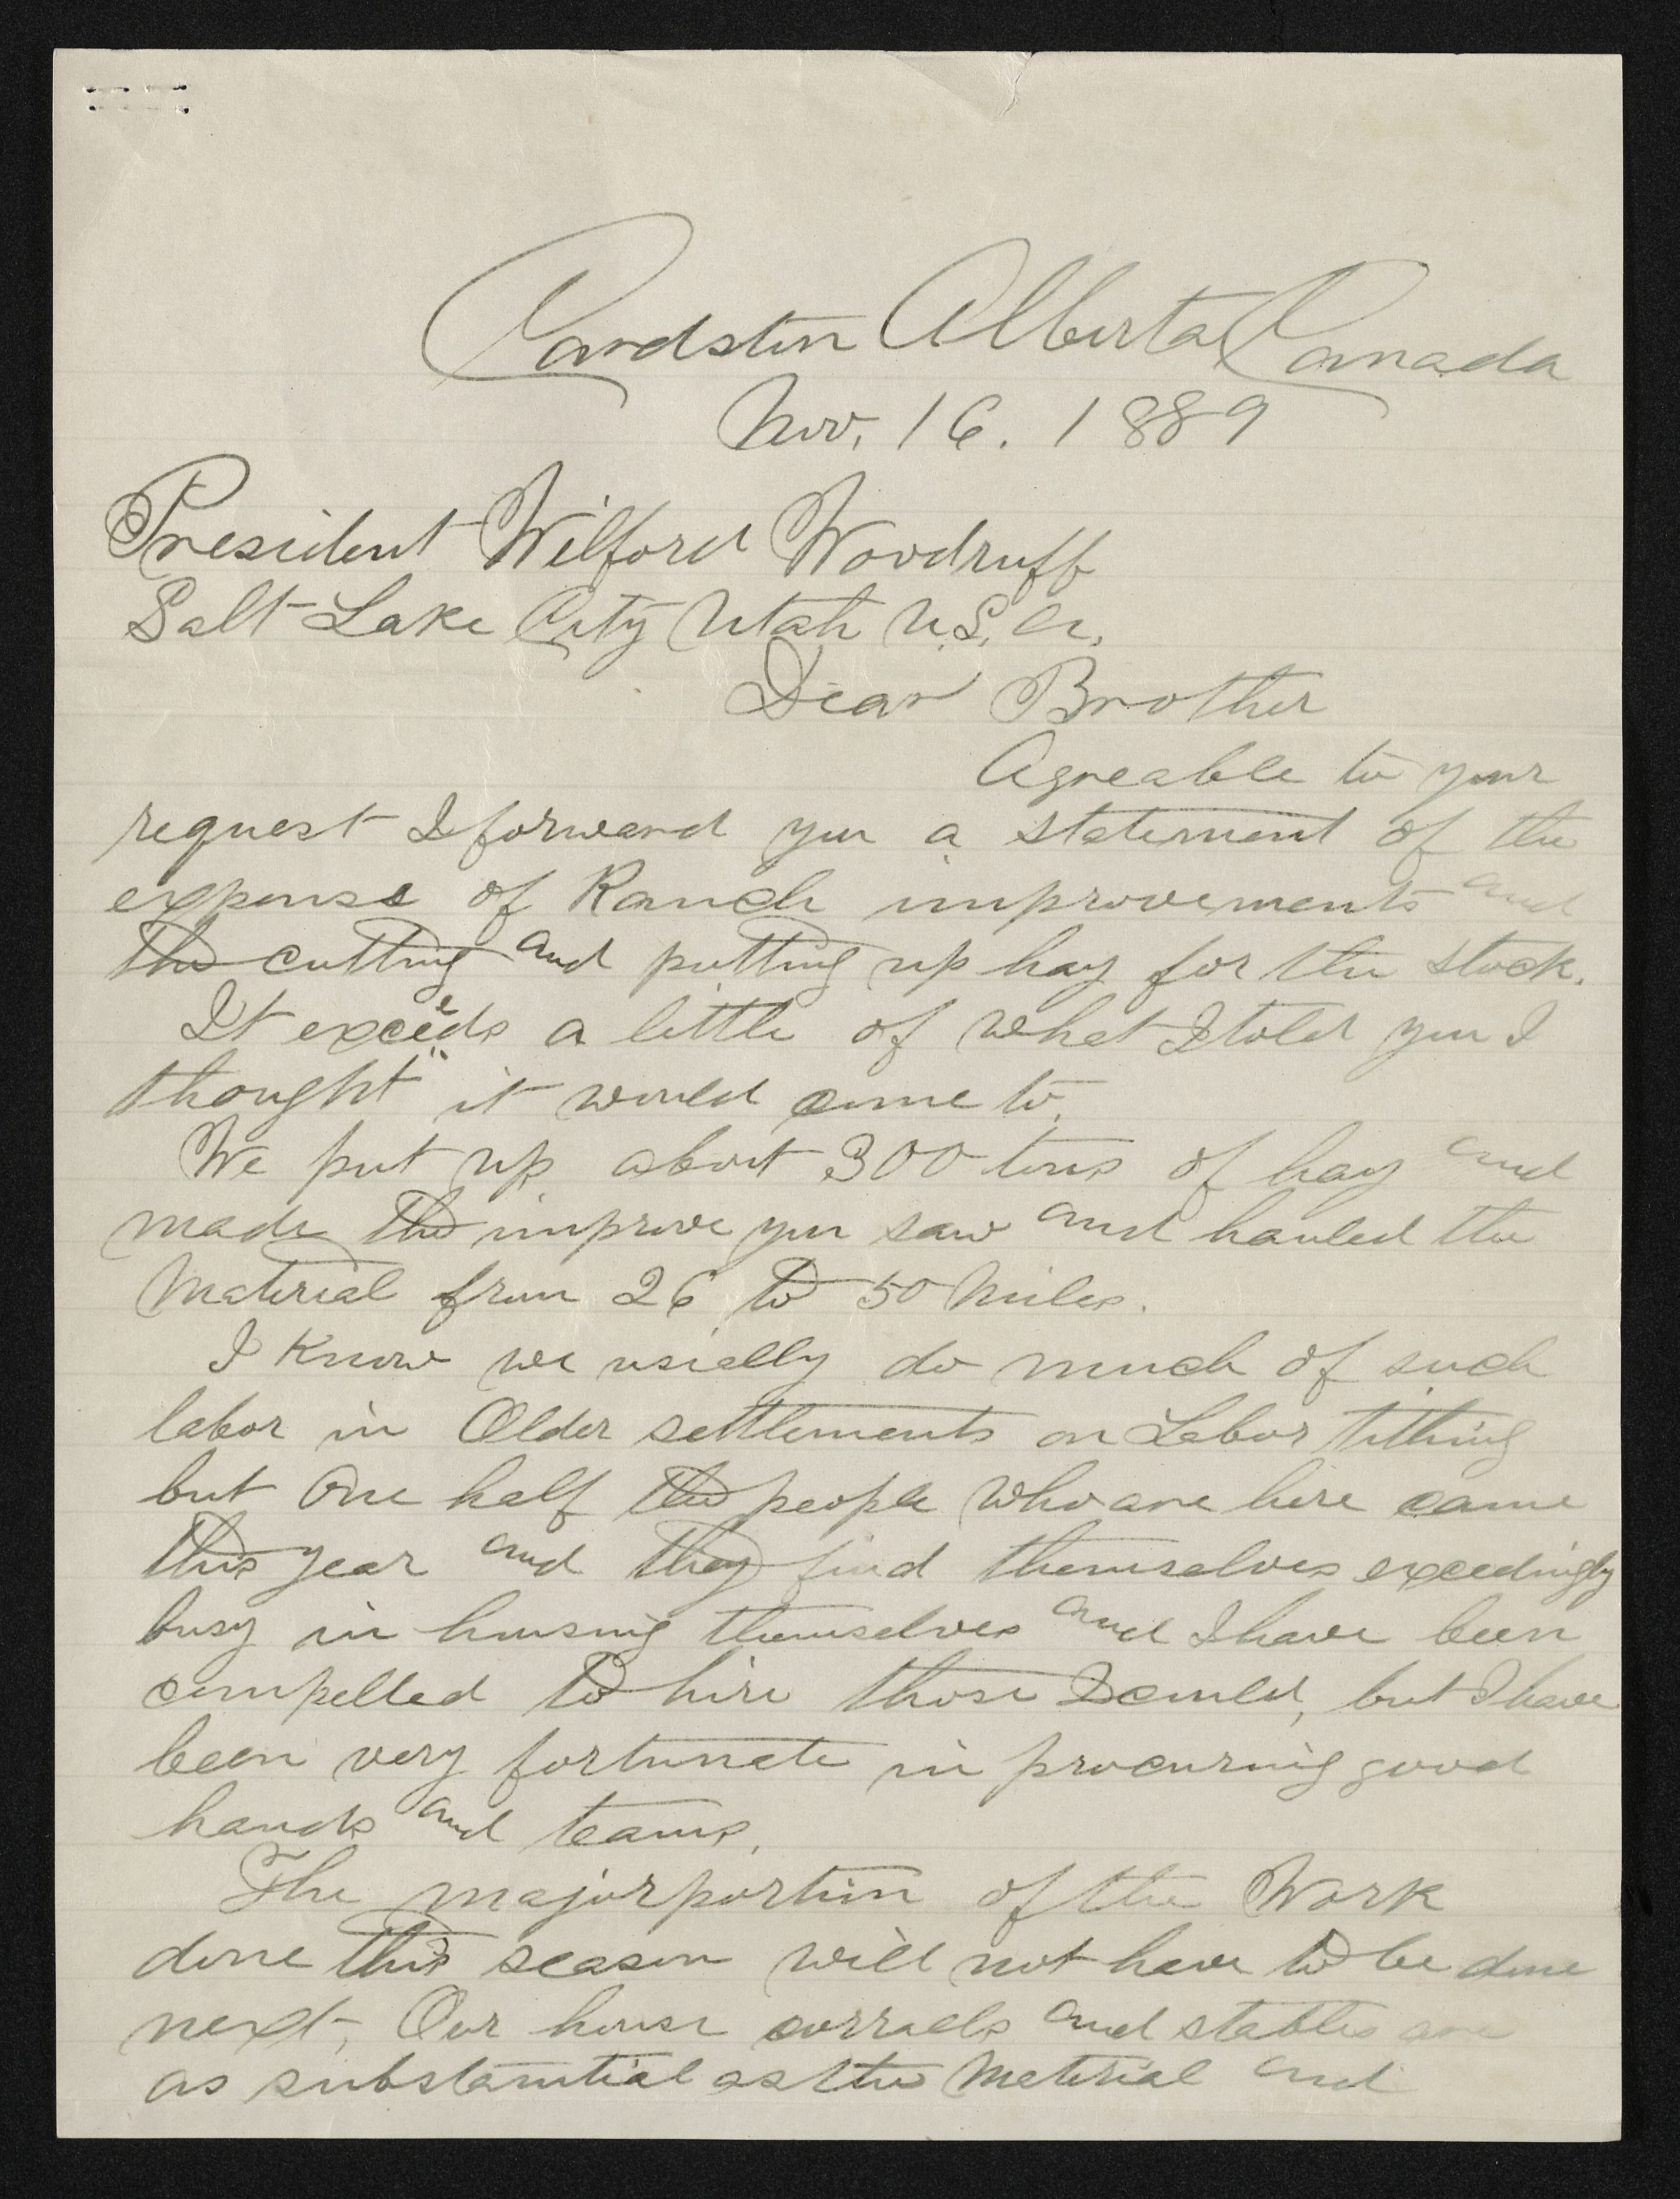 Cardston Alberta Canada
Nov. 16. 1889
President Wilford Woodruff
Salt Lake City Utah U.S.A.
Dear Brother
Agreable to your
request I forward you a statement of the
expense of Ranch improvements and
the cutting and putting up hay for the stock.
It exceeds a little of what I told you I
"thought" it would come to.
We put up about 300 tons of hay and
made the improve you saw and hauled the
Material from 26 to 50 Miles.
I Know we usially do much of such
labor in Older settlements on Labor tithing
but One half the people who are here came
this year and they find themselves exceedingly
busy in housing themselves and I have been
compelled to hire those I could, but I have
been very fortunate in procuring good
hands and teams.
The major portion of the Work
done this season will not have to be done
next, Our house corraels and stables are
as substantial as the Material and